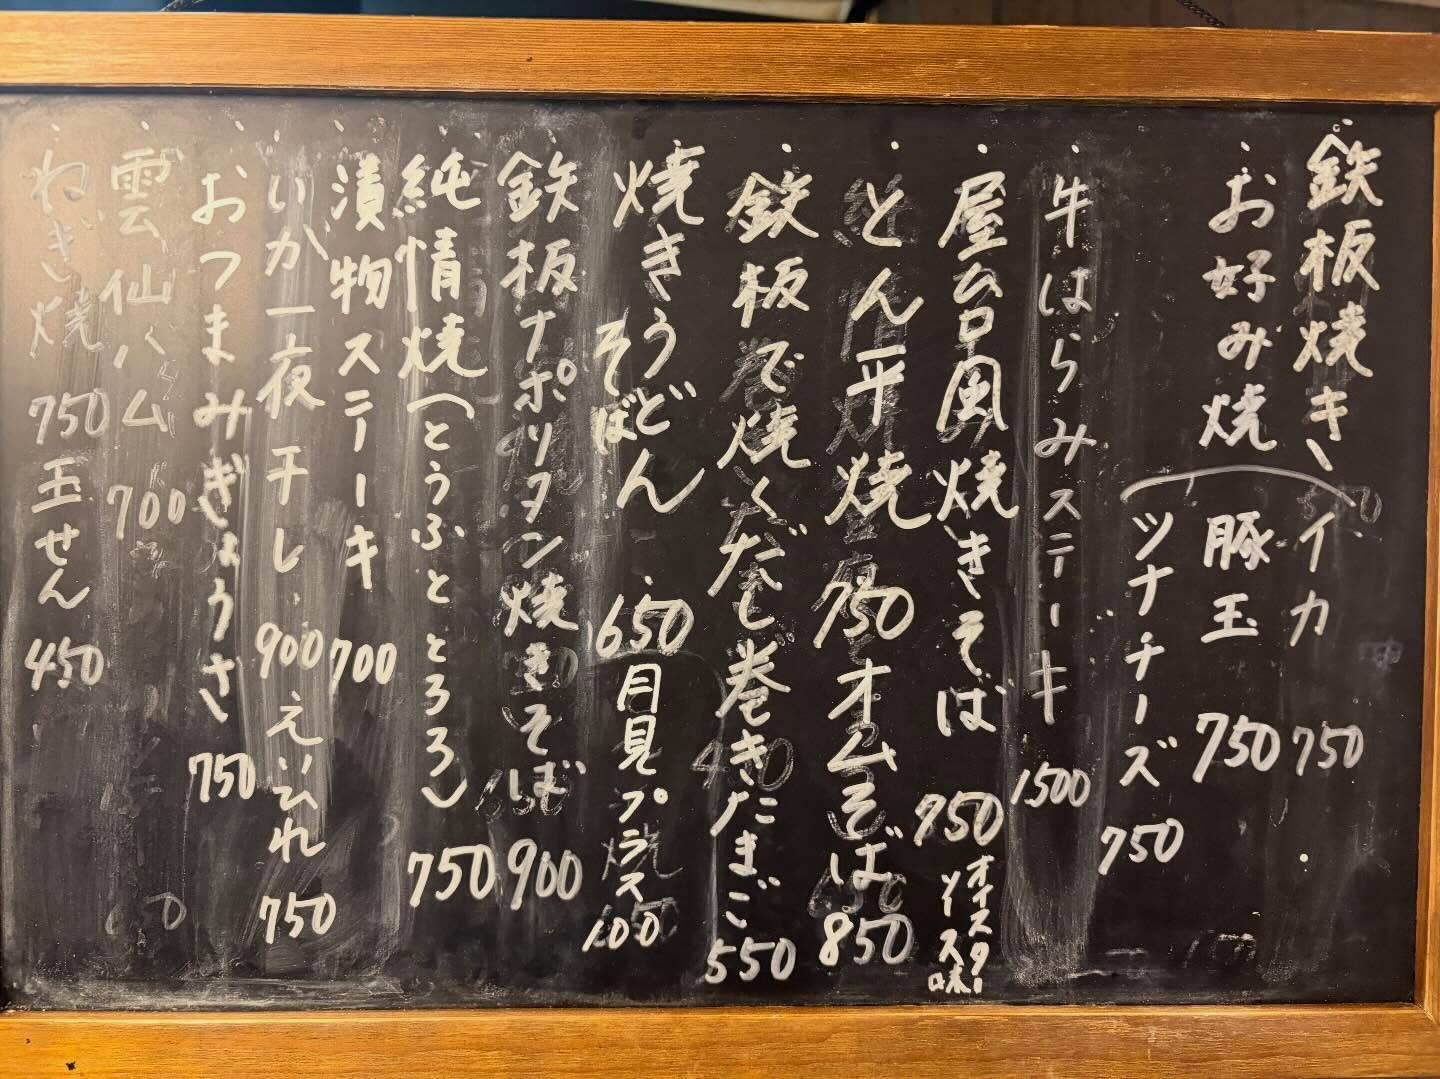 鉄板焼き
お好み焼
イカ 750
豚玉 750
ツナチーズ 750
牛はらみステーキ 1500
屋台風焼きそば 750
オイスター
ソース味
とん平焼 750 オムそば 850
鉄板で焼くだし巻きたまご 550
焼きうどん
そば
650 月見プラス 100
鉄板ナポリタン焼きそば 900
純情焼(とうふととろろ) 750
漬物ステーキ 700
いか一夜干し 900 えいひれ 750
おつまみぎょうざ 750
雲仙ハム 700
ねぎ焼 750 玉せん 450